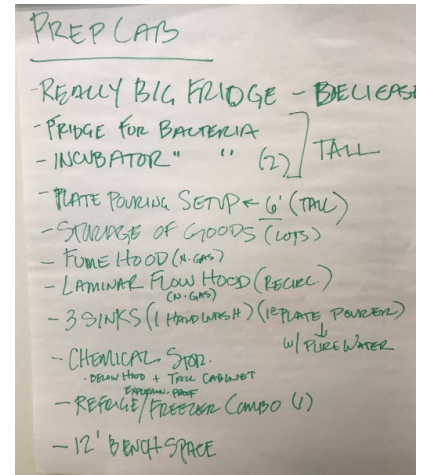 PREP LAB
- REALLY BIG FRIDGE - DELICASE
- FRIDGE FOR BACTERIA
- INCUBATOR " " (2) ] TALL
- PLATE POURING SETUP ← 6' (TALL)
- STORAGE OF GOODS (LOTS)
- FUME HOOD (N. GAS)
- LAMINAR FLOW HOOD (RECIRC.)
(N. GAS)
- 3 SINKS (1 HANDWASH) (1 @ PLATE POURER)
↓
W/ PURE WATER
- CHEMICAL STOR.
· BELOW HOOD + TALL CABINET
EXPLOSION PROOF
- REFRIGE/FREEZER COMBO (1)
- 12' BENCH SPACE